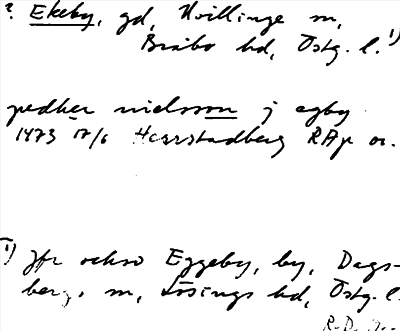 ? Ekeby, gd, Kvillinge sn,
Bråbo hd, Östg. l. 1)
pedher nielsson j egby
1473 17/6 Herrstadberg RAp or.
1) Jfr också Eggeby, by, Dags-
berg, sn, Lösings hd, Östg. l.